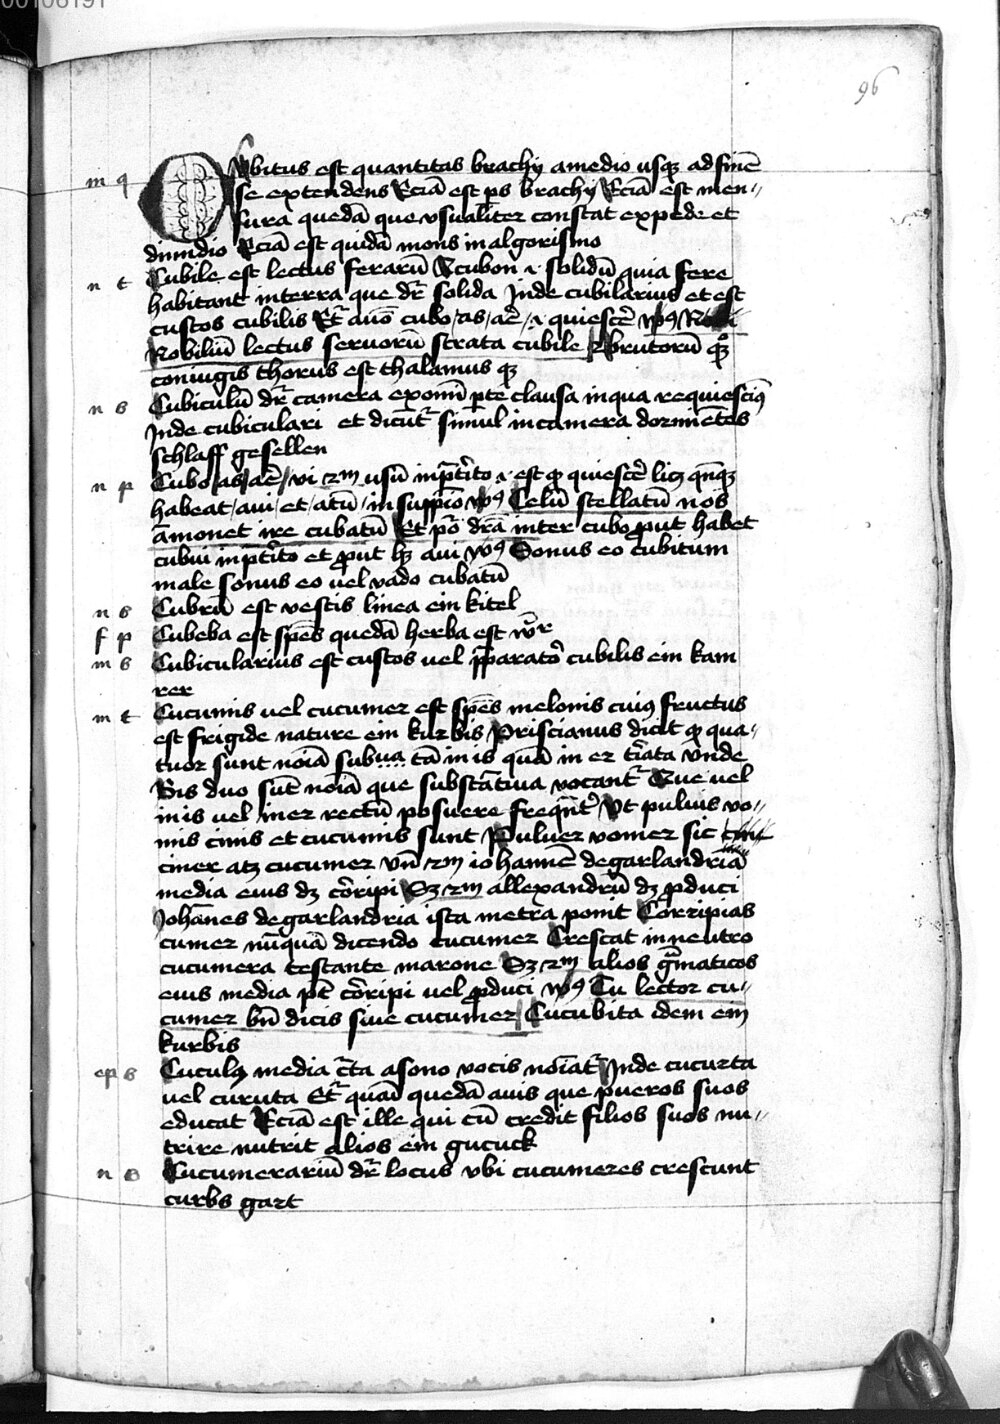 00106191
96
m q Cubitus est quantitas brachÿ amedio usq3 ad finē
se extendens Eciā est ps brachÿ Eciā est men-
sura quedā que vsualiter constat expede et
dimidio Eciā est quidā mons in algorismo
n t Cubile est lectus ferarū solidū quia fere
habitant interra que dr̄ solida Inde cubilarius et est
custos cubilis Et cubo as aē quiescē
Nobiliū lectus servorū strata cubile brutorū
coniugis thorus est thalamus q3
n s Cubiculū dr̄ camera clausa inqua requiesciꝰ
Inde cubiculari et dicūt simul incamera dormiētes
schlaff gesellen
n p Cubo as aē vi usū est quiescē
habeat aui et atū insuppīo Celū stellatū nos
āmonet ire cubatū Et drā inter cubo put habet
cubui et put aui Sonus eo cubitum
male sonus eo vel vado cubatū
n s Cubrū est vestis linea ein kitel
f p Cubeba est spēs quedā herba est
m s Cubicularius est custos vel cubilis ein kam
rer
m t Cucumis vel cucumer est spēs melonis cuiꝰ fructus
est frigide nature ein kurbis Priscianus dicit qua-
tuor sunt noīā tā in is quā in er Vnde
Bis duo sūt noīā que substātiua vocant Que vel
in is vel in er rectū posuere Vt puluis vo-
mis cinis et cucumis sunt Puluer vomer sic
ciner at3 cucumer iohannē degarlandria
media eius d3 cōripi S3 allexandrū d3 pduci
Johānes degarlandria ista metra ponit Corripias
cumer nūquā dicendo cucumer Crescat in neutro
cucumera testante marone S3 alios
eius media pt̄ cōripi vel pduci Tu lector cu-
cumer bn̄ dicis siue cucumer Cucubita idem ein
kurbis
ep s Cuculꝰ media asono vocis Inde cucurta
vel curuta Et quedā auis que pueros suos
educat Eciā est ille qui cū credit filios suos nu-
trire nutrit alios ein gucuck
n s Cucumerariū dr̄ locus vbi cucumeres crescunt
curbs gart